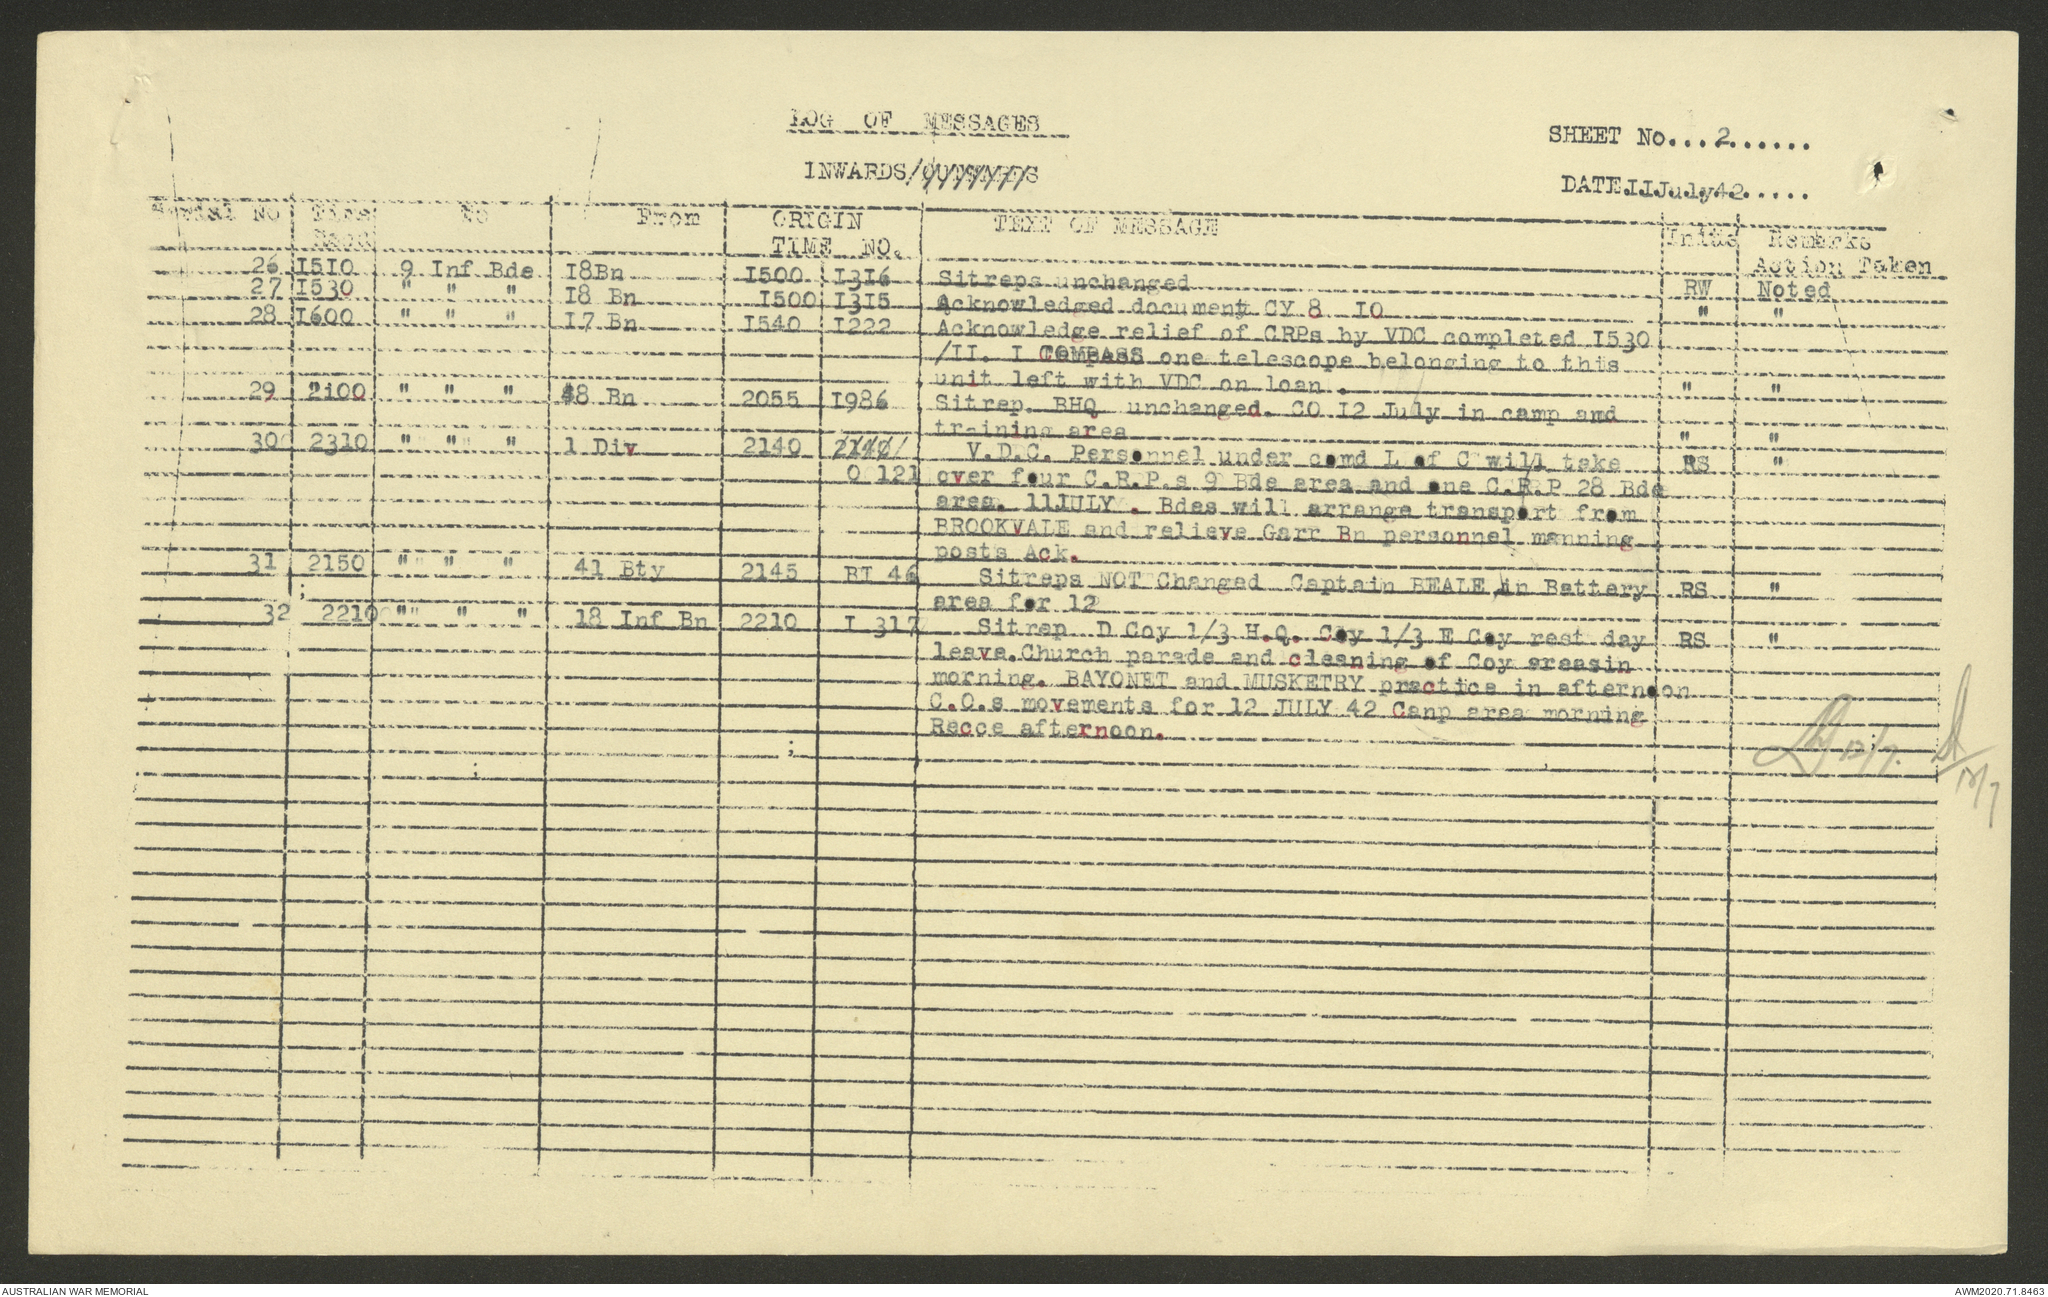 LOG OF MESSAGES
INWARDS/OUTWARDS
SHEET No...2......
DATE.IIJuly42......
Serial No Time To From ORIGIN TEXT OF MESSAGE Initls Remarks
TIME NO. Action Taken
26 I5IO 9 Inf Bde I8Bn I500 I3I6 Sitreps unchanged RW Noted
27 I530 " " " I8 Bn I500 I3I5 Acknowledged document CY 8 IO " "
28 I600 " " " I7 Bn I540 I222 Acknowledge relief of CRPs by VDC completed I530
/II. I COMPASS one telescope belonging to this
unit left with VDC on loan . " "
29 2100 " " " 48 Bn 2055 I986 Sitrep. BHQ unchanged. CO I2 July in camp amd
training area " "
30 2310 " " " 1 Div 2140 2140 V.D.C. Personnel under comd L of C will take RS "
O 121 over four C.R.P.s 9 Bde area and one C.R.P 28 Bde
area. 11JULY . Bdes will arrange transport from
BROOKVALE and relieve Garr Bn personnel manning
posts Ack.
31 2150 " " " 41 Bty 2145 BI 46 Sitreps NOT Changed Captain BEALE in Battery RS "
area for 12
32 2210 " " " 18 Inf Bn 2210 I 317 Sitrep D Coy 1/3 H.Q. Coy 1/3 E Coy rest day RS "
leave.Church parade and cleaning of Coy areasin
morning. BAYONET and MUSKETRY practice in afternoon
C.O.s movements for 12 JULY 42 Canp area morning
Recce afternoon.
12/7.
12/7
AUSTRALIAN WAR MEMORIAL
AWM2020.71.8463